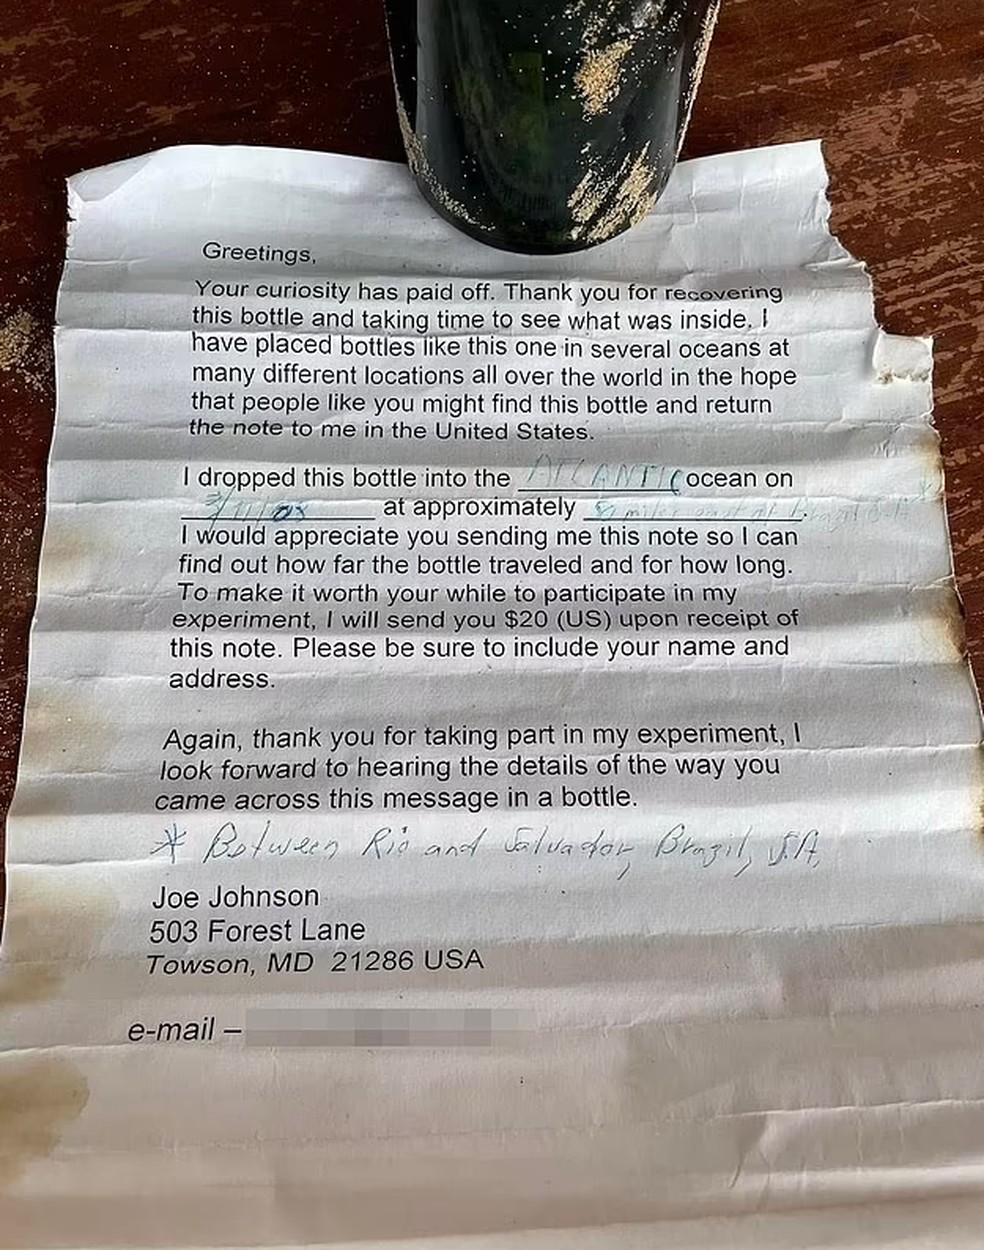 Greetings,
Your curiosity has paid off. Thank you for recovering
this bottle and taking time to see what was inside. I
have placed bottles like this one in several oceans at
many different locations all over the world in the hope
that people like you might find this bottle and return
the note to me in the United States.
I dropped this bottle into the ATLANTIC ocean on
at approximately miles east of Brazil
I would appreciate you sending me this note so I can
find out how far the bottle traveled and for how long.
To make it worth your while to participate in my
experiment, I will send you $20 (US) upon receipt of
this note. Please be sure to include your name and
address.
Again, thank you for taking part in my experiment, I
look forward to hearing the details of the way you
came across this message in a bottle.
* Between Rio and Salvador, Brazil, S.A.
Joe Johnson
503 Forest Lane
Towson, MD 21286 USA
e-mail –